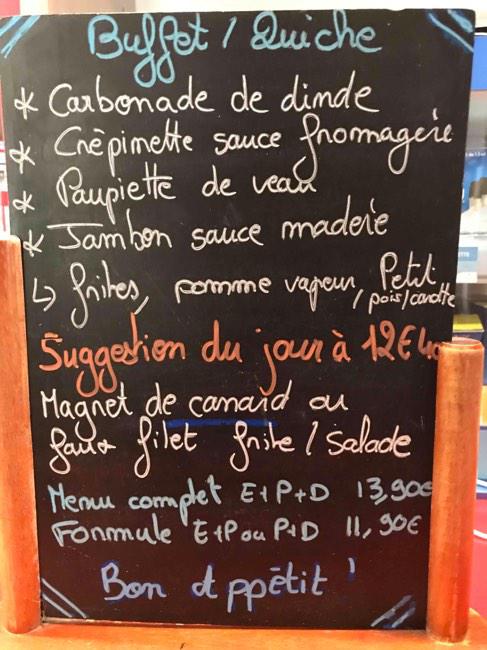 Buffet / Quiche
* Carbonade de dinde
* Crèpinette sauce fromagerie
* Paupiette de veau
* Jambon sauce madère
↳ frites, pomme vapeur, Petit pois/carotte
Suggestion du jour à 12€40
Magret de canard ou
faux filet frite / Salade
Menu complet E+P+D 13,90€
Formule E+P ou P+D 11,90€
Bon Appétit !